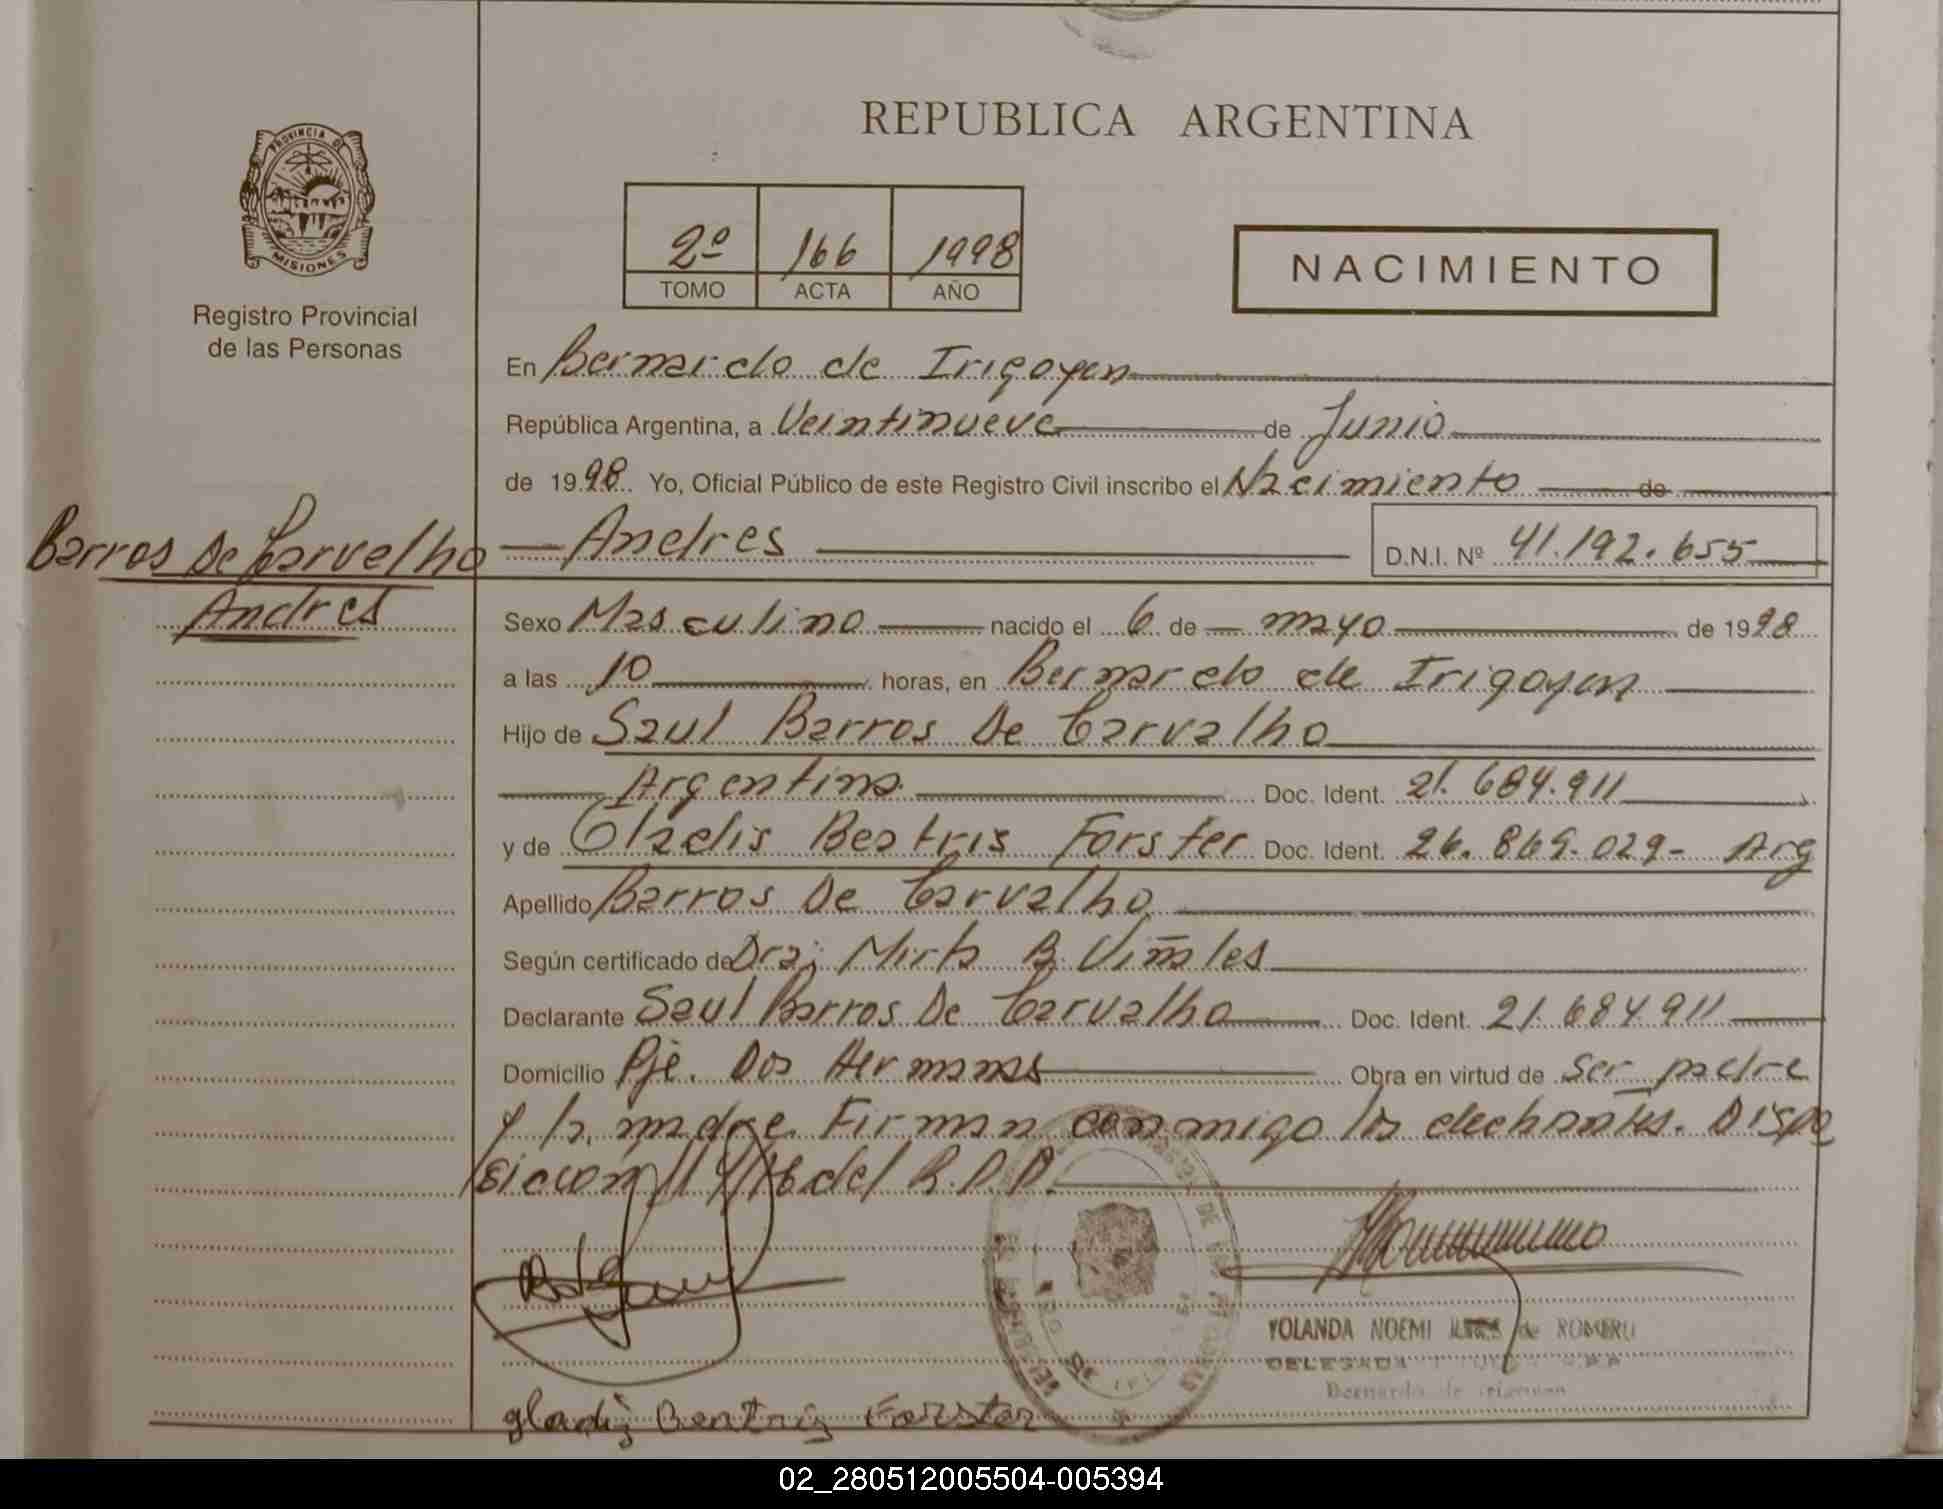 REPUBLICA ARGENTINA
PROVINCIA DE
MISIONES
Registro Provincial
de las Personas
2º 166 1998
TOMO ACTA AÑO
NACIMIENTO
En Bernardo de Irigoyen
República Argentina, a Veintinueve de Junio
de 1998 Yo, Oficial Público de este Registro Civil inscribo el Nacimiento de
Barros De Carvalho
Andres
Andres D.N.I. Nº 41.192.655
Sexo Masculino nacido el 6 de mayo de 1998
a las 10 horas, en Bernardo de Irigoyen
Hijo de Saul Barros De Carvalho
Argentino Doc. Ident. 21.684.911
y de Gladis Beatris Forster Doc. Ident. 26.869.029- Arg
Apellido Barros De Carvalho
Según certificado de Dra; Mirta B. Viñales
Declarante Saul Barros De Carvalho Doc. Ident. 21.684.911
Domicilio Pje. Dos Hermanas Obra en virtud de ser padre
y la madre. Firman conmigo los declarantes. Dispo
sicion del R.P.P.
YOLANDA NOEMI de ROMERO
DELEGADA
Bernardo de Irigoyen
gladis Beatriz Forster
02_280512005504-005394